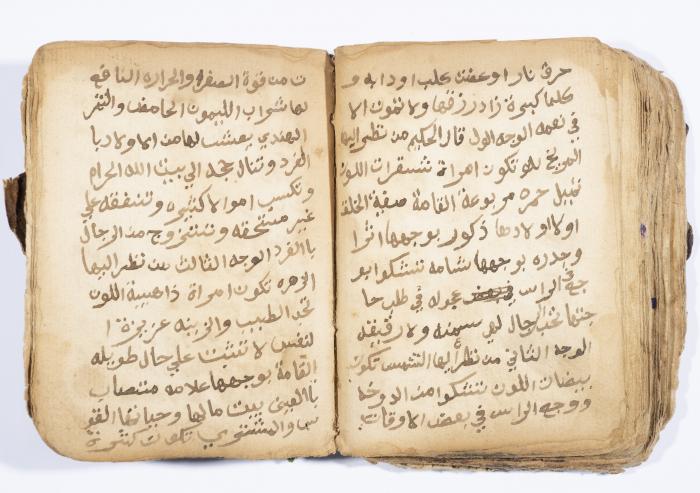 حرق نار او عضت كلب او دابه و
كلما كبرة زاد رزقها ولا تموت الا
في نعمه الوجه الاول قال الحكيم من نظر اليها
المريخ بلا تكون امراة شقرات اللون
تميل حمره مربوعة القامة صفية الخلقة
اولا اولادها ذكور بوجهها اثرا
وجدره بوجهها شامه تشتكوا بو
جع الراس عجوله في طلب حا
جتها تحب الرجال لا سمينه ولا رقيقه
الوجه الثاني من نظر اليها الشمس تكون
بيضات اللون تشتكوا من الدوخه
ووجع الراس في بعض الاوقات
ت من قوة الصفره والحراره النافع
لها شراب الليمون الحامض والتمر
الهندي يعشب لها من الاولاد با
الفرد وتنال حجه الي بيت الله الحرام
وتكسب اموالا كثيره وتنفقه علي
غير مستحقه وتتزوج من الرجال
با الفرد الوجه الثالث من نظر اليها
الزهره تكون امراة ذاهبية اللون
تحب الطيب والزينه عزيزة ا
لنفس لا تثبت علي حال طويله
القامة بوجهها علامه منتصاب
با العين بيت مالها وحياتها القو
س والمشتري تكون كثيرة